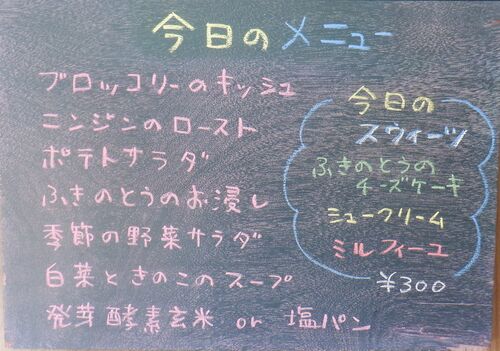 今日のメニュー
ブロッコリーのキッシュ
ニンジンのロースト
ポテトサラダ
ふきのとうのお浸し
季節の野菜サラダ
白菜ときのこのスープ
発芽酵素玄米 or 塩パン
今日の
スウィーツ
ふきのとうの
チーズケーキ
シュークリーム
ミルフィーユ
¥300